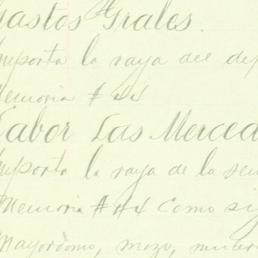 Gastos Grales.
importa la raya del dep
Memoria #
Labor Las Merced
importa la raya de la se
Memoria # como si
Mayordomo, mozo,